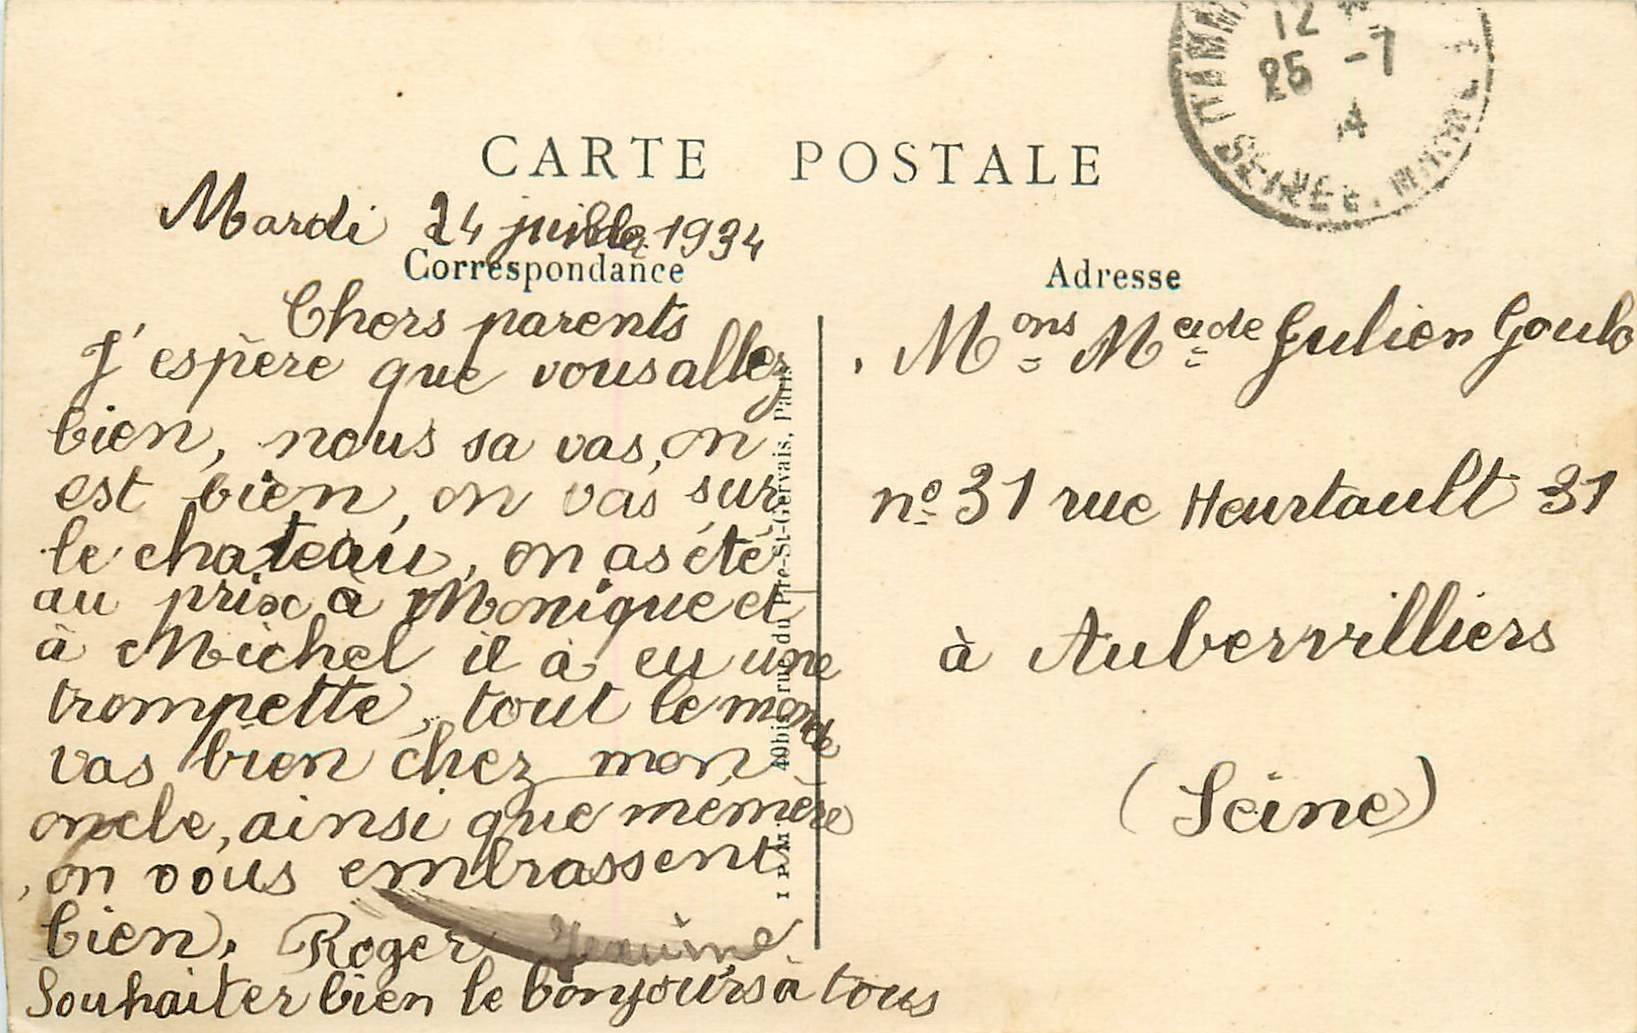 12
25 -7
SEINE E. MARNE
CARTE POSTALE
Mardi 24 juillet 1934
Correspondance
Adresse
Chers parents
J'espère que vous allez
bien, nous sa vas, on
est bien, on vas sur
le chateau, on as été
au prix à Monique et
à Michel il à eu une
trompette, tout le monde
vas bien chez mon
oncle, ainsi que mémère
on vous embrassent
bien. Roger
Souhaiter bien le bonjours à tous
I P M 40bis, rue du Pré-St-Gervais, Paris
Mons Me de Julien Goulo
no 31 rue Heurtault 31
à Aubervilliers
(Seine)